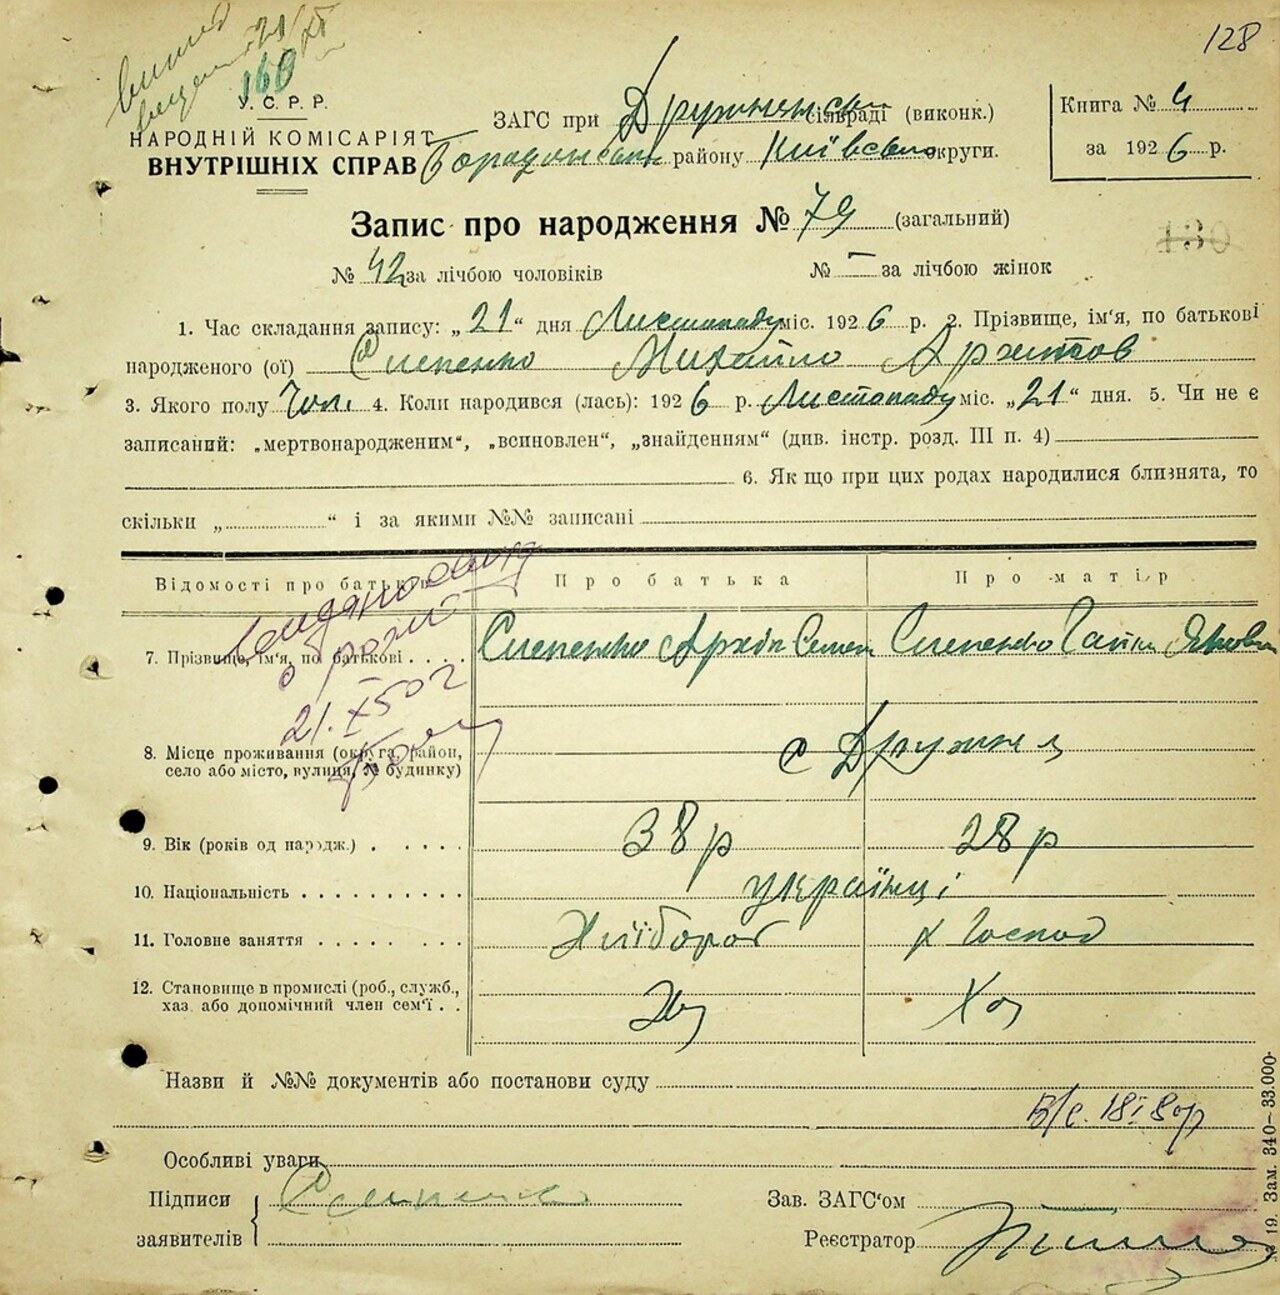 128
160
У.С.Р.Р.
НАРОДНІЙ КОМІСАРІЯТ
ВНУТРІШНІХ СПРАВ
ЗАГС при Дружненській сільраді (виконк.)
Бородянськ району Київської округи.
Книга № 4
за 1926 р.
Запис про народження № 79 (загальний)
130
№ 42 за лічбою чоловіків № — за лічбою жінок
1. Час складання запису: „21“ дня Листопаду міс. 1926 р. 2. Прізвище, ім'я, по батькові
народженого (ої) Михайло Архипов
3. Якого полу Чол. 4. Коли народився (лась): 1926 р. Листопаду міс. „21“ дня. 5. Чи не є
записаний: „мертвонародженим“, „всиновлен“, „знайденням“ (див. інстр. розд. III п. 4)
6. Як що при цих родах народилися близнята, то
скільки „ “ і за якими №№ записані
Відомості про батьків Про батька Про матір
7. Прізвище, ім'я, по батькові Архіп Семен
21.XI 50 г
8. Місце проживання (округа, район, село або місто, вулиця, № будинку) с Дружня
9. Вік (років од народж.) 38 р 28 р
10. Національність українці
11. Головне заняття Хлібороб х Господ
12. Становище в промислі (роб., служб., хаз. або допомічний член сем'ї Хаз
Назви й №№ документів або постанови суду
В/с. 18 I 80 р
Особливі уваги
Підписи
заявителів
Зав. ЗАГС'ом
Реєстратор
№ 19. Зам. 340–33.000-